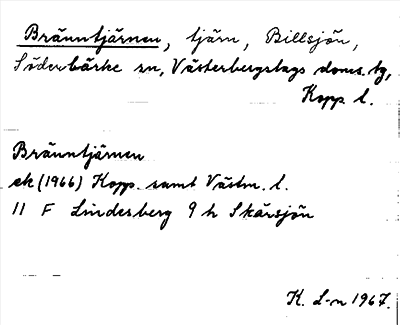 Bränntjärnen, tjärn, Billsjön,
Söderbärke sn, Västerbergslags doms. tg,
Kopp l.
Bränntjärnen
ek (1966) Kopp. samt Västm. l.
11 F Lindesberg 9 h Skärsjön
K. L-n 1967.